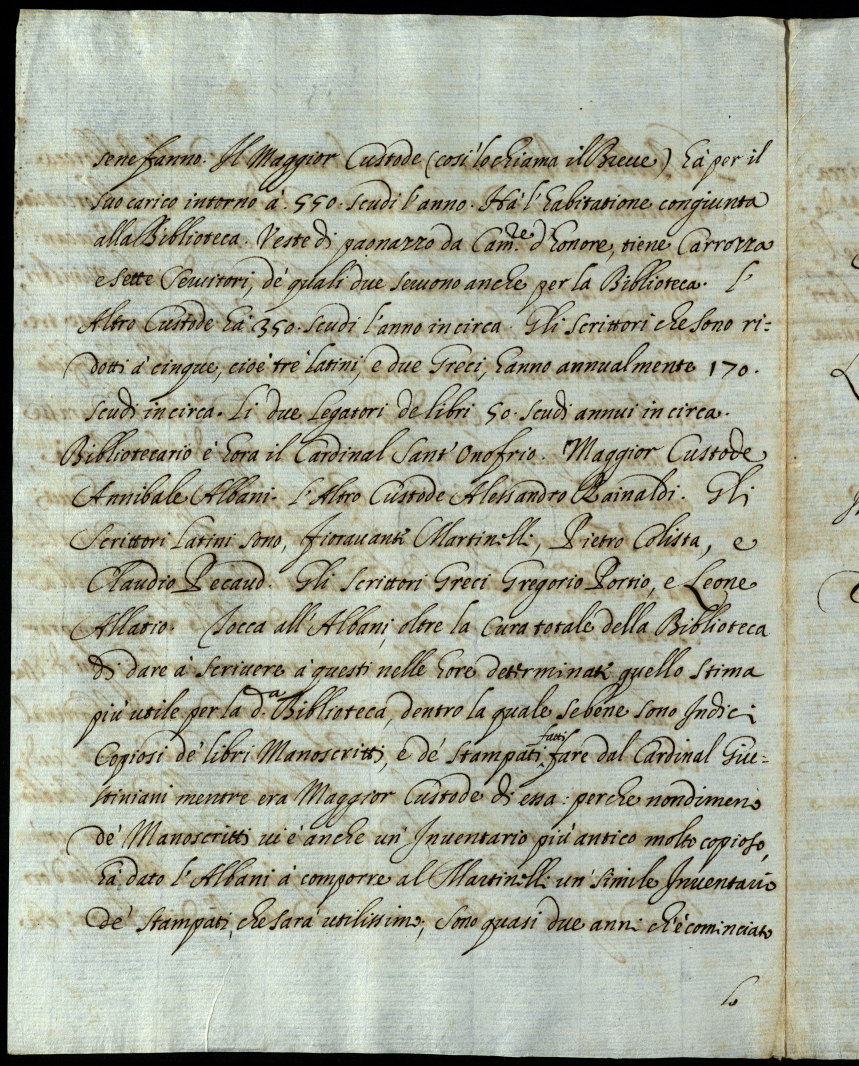 sene fanno. Il Maggior Custode (cosi' lo chiama il Breue) hà per il
suo carico intorno à 550. scudi l'anno. Hà l'habitatione congiunta
alla Biblioteca. Veste di paonazzo da Cam.re d'honore, tiene Carrozza
e sette Seruitori, de' quali due seruono anche per la Biblioteca. l'
Altro Custode hà 350. scudi l'anno in circa. Gli scrittori che sono ri=
dotti à cinque, cioè trè latini, e due Greci, hanno annualmente 170.
scudi in circa. Li due legatori de libri 50. scudi annui in circa.
Bibliotecario è hora il Cardinal Sant' Onofrio. Maggior Custode
Annibale Albani. l'Altro Custode Alessandro Rainaldi. Gli
Scrittori latini sono, Fiorauante Martinelli, Pietro Colista, e
Claudio Pecaud. Gli scrittori Greci Gregorio Portio, e Leone
Allatio. Tocca all'Albani, oltre la cura totale della Biblioteca
di dare à scriuere à questi nelle hore determinate quello stima
più utile per la d.a Biblioteca, dentro la quale sebene sono Indici
Copiosi de' libri Manoscritti, e de' stampati, fatti fare dal Cardinal Giu=
stiniani mentre era Maggior Custode di essa: perche nondimeno
de' Manoscritti ui è anche un' Inuentario più antico molto copioso,
hà dato l'Albani à comporre al Martinelli un' simile Inuentario
de' stampati, che sarà utilissimo; sono quasi due anni ch'è cominciato